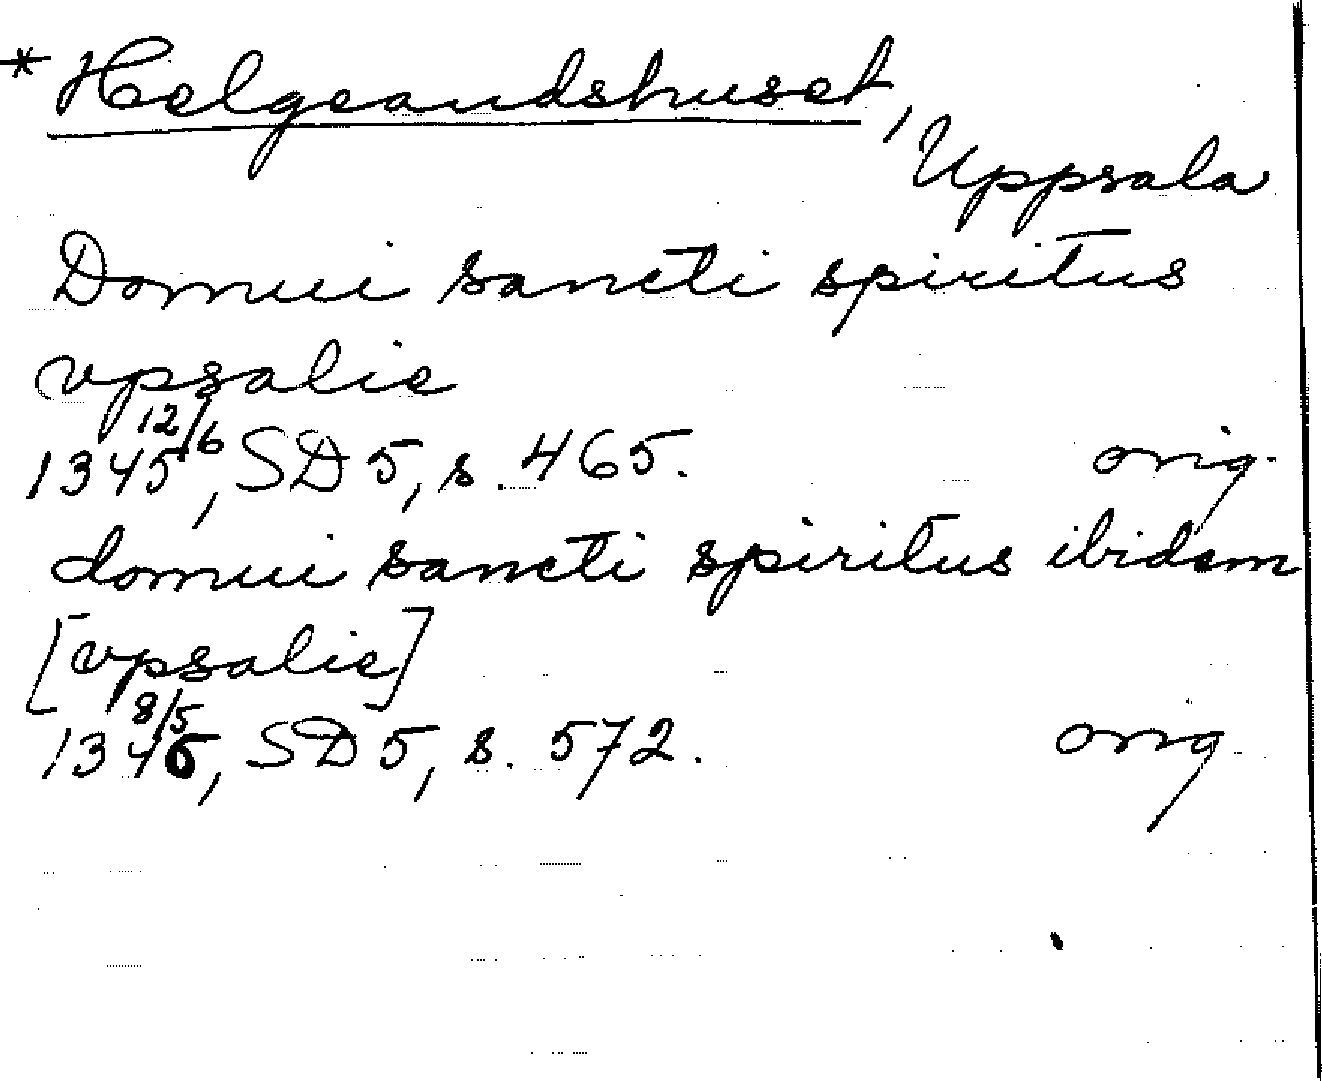 * Helgeandshuset,
Uppsala
Domui sancti spiritus
vpsalie
1345 12/6, SD 5, s. 465. orig.
domui sancti spiritus ibidem
[vpsalie]
1346 8/5, SD 5, s. 572. orig